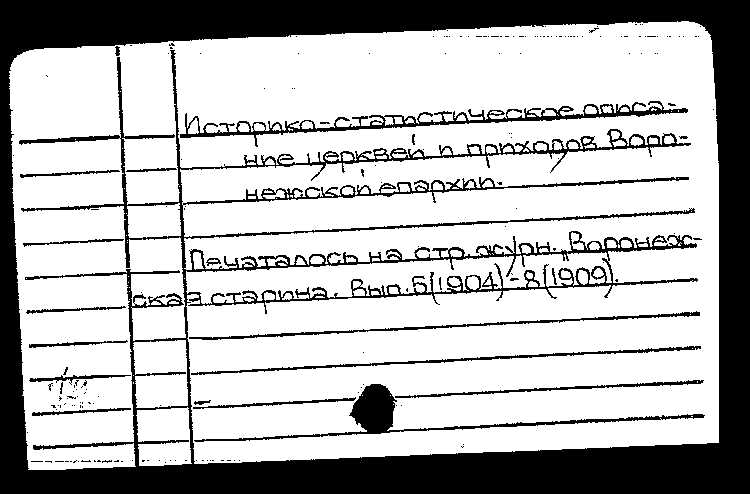 Историко-статистическое описа-
ние церквей и приходов Воро-
нежской епархии.
Печаталось на стр. журн. „Воронеж-
ская старина. Вып. 5(1904)-8(1909).